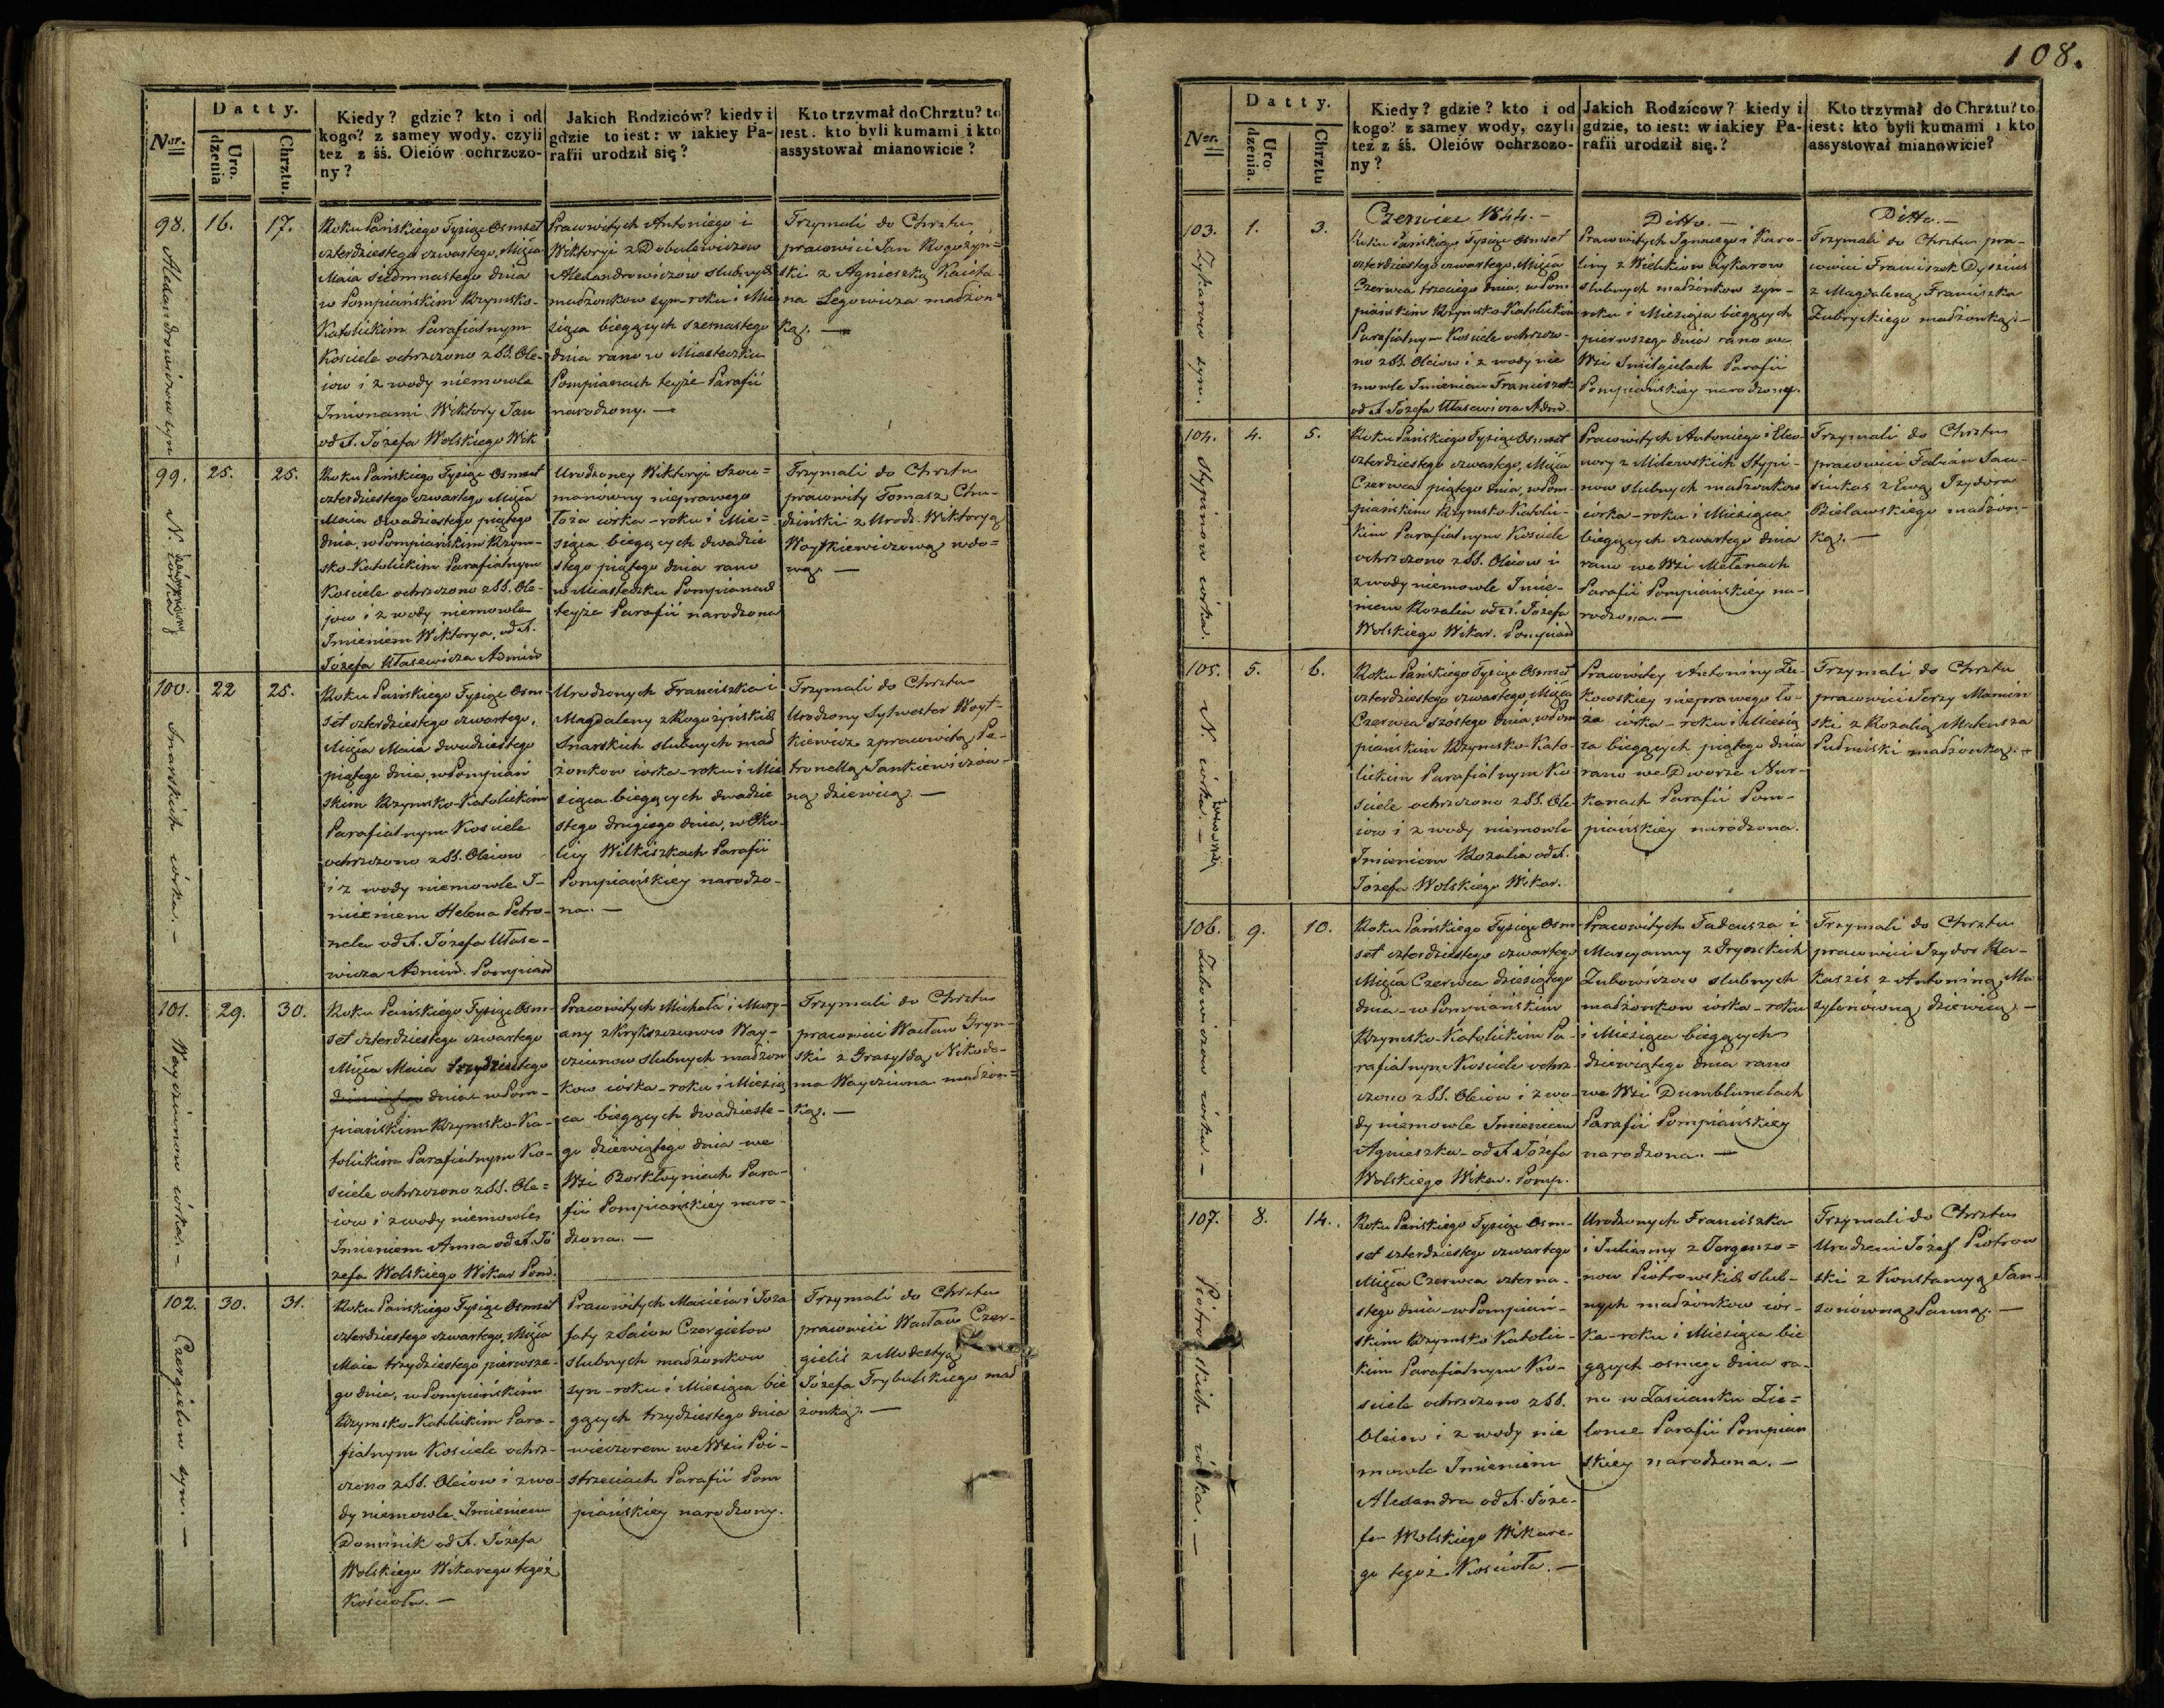 108.
Datty.
Ner.
Uro-
dzenia
Chrztu.
Kiedy? gdzie? kto i od
kogo? z samey wody, czyli
też z śś. Oleiów ochrzczo-
ny?
Jakich Rodziców? kiedy i
gdzie to iest: w iakiey Pa-
rafii urodził się?
Kto trzymał do Chrztu? to
iest. kto byli kumami i kto
assystował mianowicie?
98.
Alexandrowiczow syn
16.
17.
Roku Pańskiego Tysiąc Osmset
czterdziestego czwartego, Mśca
Maia siedmnastego dnia
w Pompiańskim Rzymsko-
Katolickim Parafialnym
Kosciele ochrzczono z SS. Ole-
iow i z wody niemowle
Imionami Wiktory Jan
od X. Józefa Wolskiego Wik
Pracowitych Antoniego i
Wiktoryi z Dobulewiczow
Alexandrowiczów slubnych
małżonkow syn - roku i Mie
siąca biegących szesnastego
dnia rano w Miasteczku
Pompianach teyże Parafii
narodzony. —
Trzymali do Chrztu
pracowici Jan Rogożyn=
ski z Agnieszką Kaieta-
na Legowicza małżon-
ką. —
99.
N. córka
25.
25.
Roku Pańskiego Tysiąc Osmset
czterdziestego czwartego Mśca
Maia dwudziestego piątego
dnia, w Pompiańskim Rzym-
sko-Katolickim Parafialnym
Kosciele ochrzczono z SS. Ole-
jow i z wody niemowle
Imieniem Wiktorya, od X.
Józefa Ułasewicza Admin
Urodzoney Wiktoryi Szow=
manówny nieprawego
Łoża córka - roku i Mie=
siąca biegących dwudzie
stego piątego dnia rano
w Miasteczku Pompianach
teyże Parafii narodzona
Trzymali do Chrztu
pracowity Tomasz Chu-
dziński z Urodz. Wiktoryą
Woytkiewiczową wdo=
wą. —
100.
Snarskich córka. —
22
25.
Roku Pańskiego Tysiąc Osm
set czterdziestego czwartego,
Mśca Maia dwudziestego
piątego dnia, w Pompian
skim Rzymsko-Katolickim
Parafialnym Kosciele
ochrzczono z SS. Oleiow
i z wody niemowle I-
mieniem Helena Petro-
nela od X. Józefa Ułase-
wicza Admin. Pompian
Urodzonych Franciszka i
Magdaleny z Rogożyńskich
Snarskich slubnych mał
żonkow córka - roku i Mie
siąca biegących dwudzie
stego drugiego dnia, w Oko-
licy Wilkiszkach Parafii
Pompiańskiey narodzo-
na. —
Trzymali do Chrztu
Urodzony Sylwester Woyt-
kiewicz z pracowitą Pe-
tronellą Jankiewiczow-
ną dziewicą. —
101.
Wayciunow córka. —
29.
30.
Roku Pańskiego Tysiąc Osm-
set czterdziestego czwartego
Mśca Maia trzydziestego
dnia w Pom-
piańskim Rzymsko-Ka-
tolickim Parafialnym Ko-
sciele ochrzczono z SS. Ole=
iow i z wody niemowle
Imieniem Anna od X. Jó
zefa Wolskiego Wikar Pom.
Pracowitych Michała i Mary-
any z Krykszczunow Way-
cziunow slubnych małżon
kow córka - roku i Miesią
ca biegących dwudzieste-
go dziewiątego dnia we
Wsi Borkloyniach Para-
fii Pompiańskiey naro-
dzona. —
Trzymali do Chrztu
pracowici Wacław Gryn-
ski z Grasyldą Nikode-
ma Wayciuna małżon=
ką. —
102.
Czergielow syn. —
30.
31.
Roku Pańskiego Tysiąc Osmset
czterdziestego czwartego, Mśca
Maia trzydziestego pierwsze-
go dnia, w Pompiańskim
Rzymsko-Katolickim Para-
fialnym Kosciele ochrz-
czono z SS. Oleiow i z wo-
dy niemowle Imieniem
Dominik od X. Józefa
Wolskiego Wikarego tegoż
Kościoła. —
Pracowitych Macieia i Joza
faty z Saiow Czergielow
slubnych małżonkow
syn - roku i Miesiąca bie
gących trzydziestego dnia
wieczorem we Wsi Poi-
strzeciach Parafii Pom
piańskiey narodzony.
Trzymali do Chrztu
pracowici Wacław Czer-
gielis z Modestyą
Józefa Trybulskiego mał
żonką. —
Datty.
Ner.
Uro
dzenia.
Chrztu
Kiedy? gdzie? kto i od
kogo? z samey wody, czyli
też z śś. Oleiów ochrzczo-
ny?
Jakich Rodzicow? kiedy i
gdzie, to iest: w iakiey Pa-
rafii urodził się.?
Kto trzymał do Chrztu? to
iest: kto byli kumami i kto
assystował mianowicie?
Czerwiec 1844. —
Ditto. —
Ditto. —
103.
Zykarow syn.
1.
3.
Roku Pańskiego Tysiąc Osmset
czterdziestego czwartego, Mśca
Czerwca trzeciego dnia, w Pom-
piańskim Rzymsko-Katolickim
Parafialnym Kosciele ochrzczo-
no z SS. Oleiow i z wody nie
mowle Imieniem Franciszek
od X Józefa Ułasewicza Admi-
Pracowitych Ignacego i Karo-
liny z Wielikiow Zykarow
slubnych małżonkow syn -
roku i Miesiąca biegących
pierwszego dnia rano we
Wsi Smilgielach Parafii
Pompiańskiey narodzony.
Trzymali do Chrztu pra-
cowici Franciszek Dyszius
z Magdaleną Franciszka
Zubryckiego małżonką. —
104.
Stypinow córka.
4.
5.
Roku Pańskiego Tysiąc Osmset
czterdziestego czwartego, Mśca
Czerwca piątego dnia, w Pom-
piańskim Rzymsko-Katolic-
kim Parafialnym Kosciele
ochrzczono z SS. Oleiow i
z wody niemowle Imie-
niem Rozalia od X. Józefa
Wolskiego Wikar. Pompian
Pracowitych Antoniego i Eleo-
nory z Milewskich Stypi-
now slubnych małżonkow
córka - roku i Miesiąca
biegących czwartego dnia
rano we Wsi Mełenach
Parafii Pompiańskiey na-
rodzona. —
Trzymali do Chrztu
pracowici Fabian Jan-
sinkas z Ewą Izydora
Bielawskiego małżon-
ką. —
105.
N. córka. —
5.
6.
Roku Pańskiego Tysiąc Osmset
czterdziestego czwartego Mśca
Czerwca szostego dnia, w Pom
piańskim Rzymsko-Kato-
lickim Parafialnym Ko
sciele ochrzczono z SS. Ole-
iow i z wody niemowle
Imieniem Rozalia od X.
Józefa Wolskiego Wikar.
Pracowitey Antoniny Żu-
kowskiey nieprawego Ło-
ża córka - roku i Miesią
ca biegących piątego dnia
rano we Dworze Nur-
kanach Parafii Pom-
piańskiey narodzona.
Trzymali do Chrztu
pracowici Jerzy Mamin
ski z Rozalią Mateusza
Pudmiski małżonką. —
106.
Zubowiczow córka. —
9.
10.
Roku Pańskiego Tysiąc Osm-
set czterdziestego czwartego
Mśca Czerwca dziesiątego
dnia - w Pompiańskim
Rzymsko-Katolickim Pa-
rafialnym Kosciele ochrz-
czono z SS. Oleiow i z wo-
dy niemowle Imieniem
Agnieszka - od X Józefa
Wolskiego Wikar. Pomp.
Pracowitych Tadeusza i
Maryanny z Grynskich
Zubowiczow slubnych
małżonkow córka - roku
i Miesiąca biegących
dziewiątego dnia rano
we Wsi Dumblunelach
Parafii Pompiańskiey
narodzona. —
Trzymali do Chrztu
pracowici Izydor Ra-
kaszis z Antoniną Ma
zylonówną dziewicą. —
107.
Piotrowskich córka. —
8.
14.
Roku Pańskiego Tysiąc Osm-
set czterdziestego czwartego
Mśca Czerwca czterna-
stego dnia - w Pompiań-
skim Rzymsko Katolic-
kim Parafialnym Ko-
sciele ochrzczono z SS.
Oleiow i z wody nie
mowle Imieniem
Alexandra od X. Józe-
fa Wolskiego Wikare-
go tegoż Kościoła. —
Urodzonych Franciszka
i Julianny z Jorgenzo=
now Piotrowskich slub-
nych małżonkow cór-
ka - roku i Miesiąca bie
gących osmego dnia ra-
no w Zascianku Zie=
lonce Parafii Pompian
skiey narodzona. —
Trzymali do Chrztu
Urodzeni Józef Piotrow
ski z Konstancyą Jan-
zonówną Panną. —